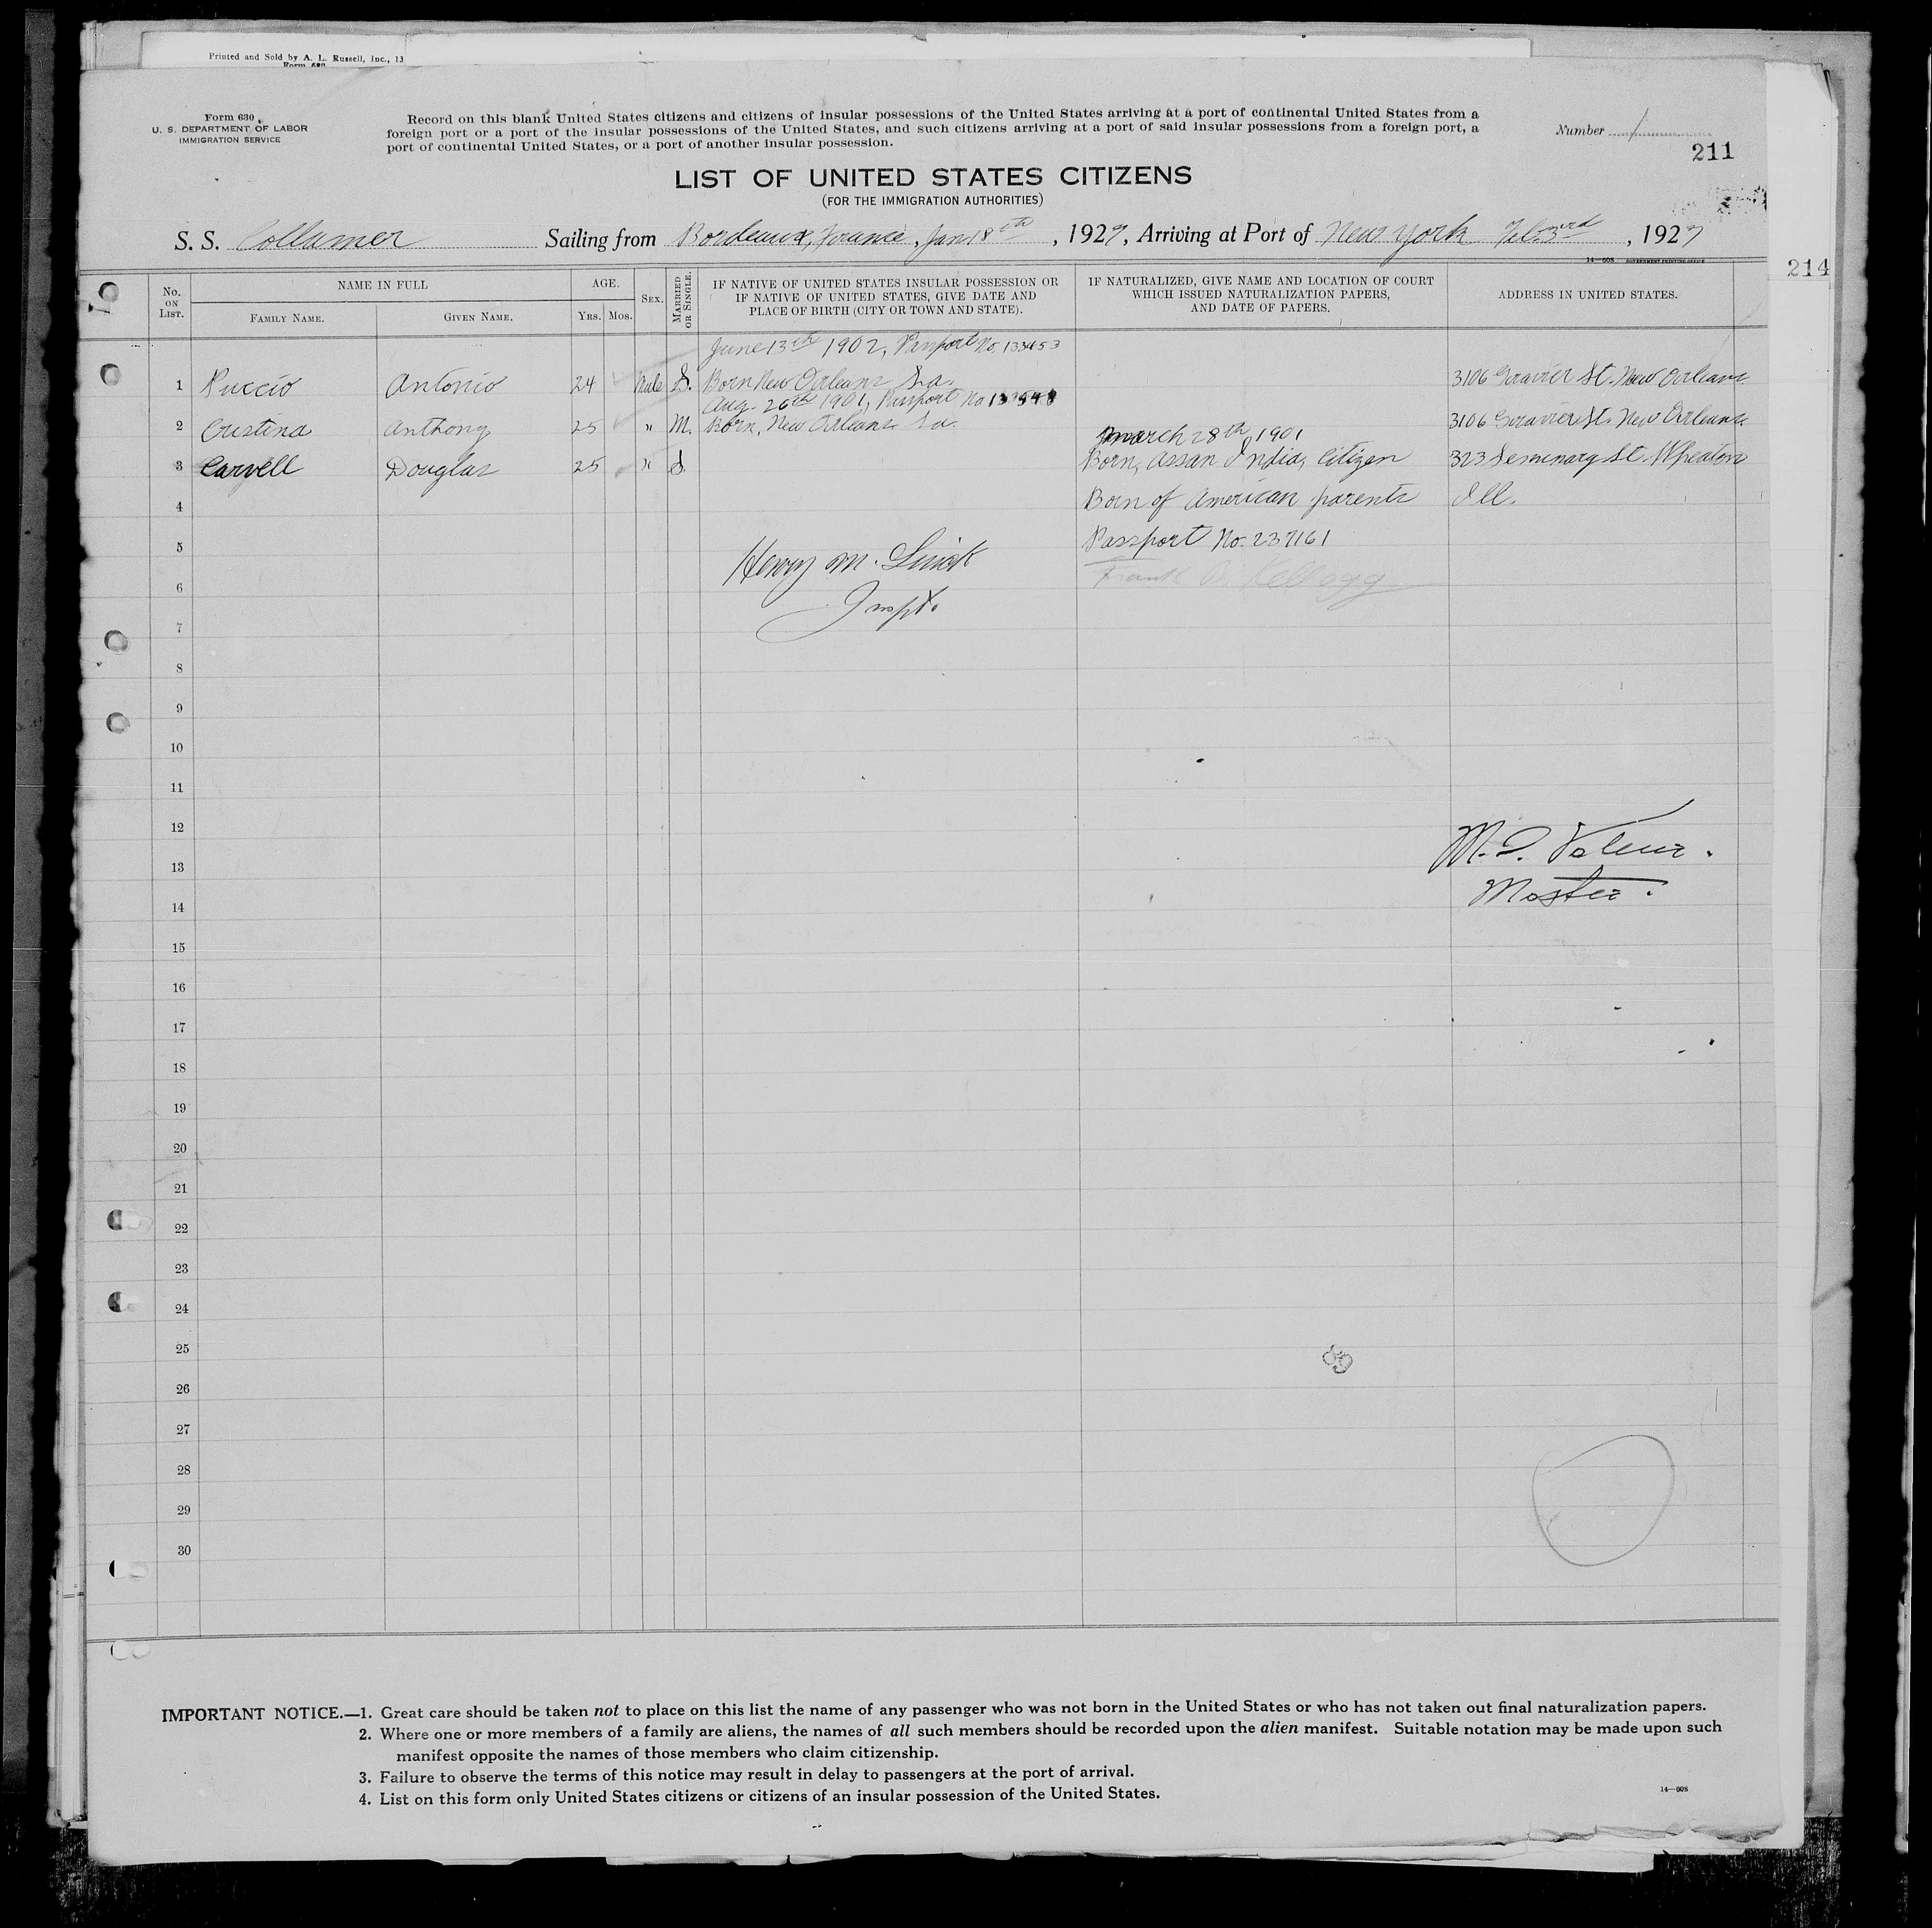 Printed and Sold by A. L. Russell, Inc., 13
Form 630
Form 630
U. S. DEPARTMENT OF LABOR
IMMIGRATION SERVICE
Record on this blank United States citizens and citizens of insular possessions of the United States arriving at a port of continental United States from a
foreign port or a port of the insular possessions of the United States, and such citizens arriving at a port of said insular possessions from a foreign port, a
port of continental United States, or a port of another insular possession.
Number 1
211
LIST OF UNITED STATES CITIZENS
(FOR THE IMMIGRATION AUTHORITIES)
S. S. Collamer Sailing from Bordeaux, France, Jan 18th, 1927, Arriving at Port of New York Feb. 3rd, 1927
14—608 GOVERNMENT PRINTING OFFICE
214
No. ON LIST. NAME IN FULL AGE. SEX. MARRIED OR SINGLE. IF NATIVE OF UNITED STATES INSULAR POSSESSION OR IF NATIVE OF UNITED STATES, GIVE DATE AND PLACE OF BIRTH (CITY OR TOWN AND STATE). IF NATURALIZED, GIVE NAME AND LOCATION OF COURT WHICH ISSUED NATURALIZATION PAPERS, AND DATE OF PAPERS. ADDRESS IN UNITED STATES.
FAMILY NAME. GIVEN NAME. YRS. MOS.
June 13th 1902, Passport No. 133453
1 Puccio Antonio 24 Male S. Born New Orleans La. 3106 Gravier St. New Orleans
Aug. 26th 1901, Passport No
2 Cristina Anthony 25 " M. Born, New Orleans La. 3106 Gravier St. New Orleans
March 28th 1901
3 Carvell Douglas 25 " S Born, Assan India, Citizen 323 Seminary St. Wheaton
4 Born of American parents Ill.
5 Passport No. 237161
Henry M. Linck
Frank B. Kellogg
6
Inspt.
7
8
9
10
11
12
M. I.
13
Master.
14
15
16
17
18
19
20
21
22
23
24
25
89
26
27
28
29
30
IMPORTANT NOTICE.—1. Great care should be taken not to place on this list the name of any passenger who was not born in the United States or who has not taken out final naturalization papers.
2. Where one or more members of a family are aliens, the names of all such members should be recorded upon the alien manifest. Suitable notation may be made upon such
manifest opposite the names of those members who claim citizenship.
3. Failure to observe the terms of this notice may result in delay to passengers at the port of arrival.
4. List on this form only United States citizens or citizens of an insular possession of the United States.
14—608